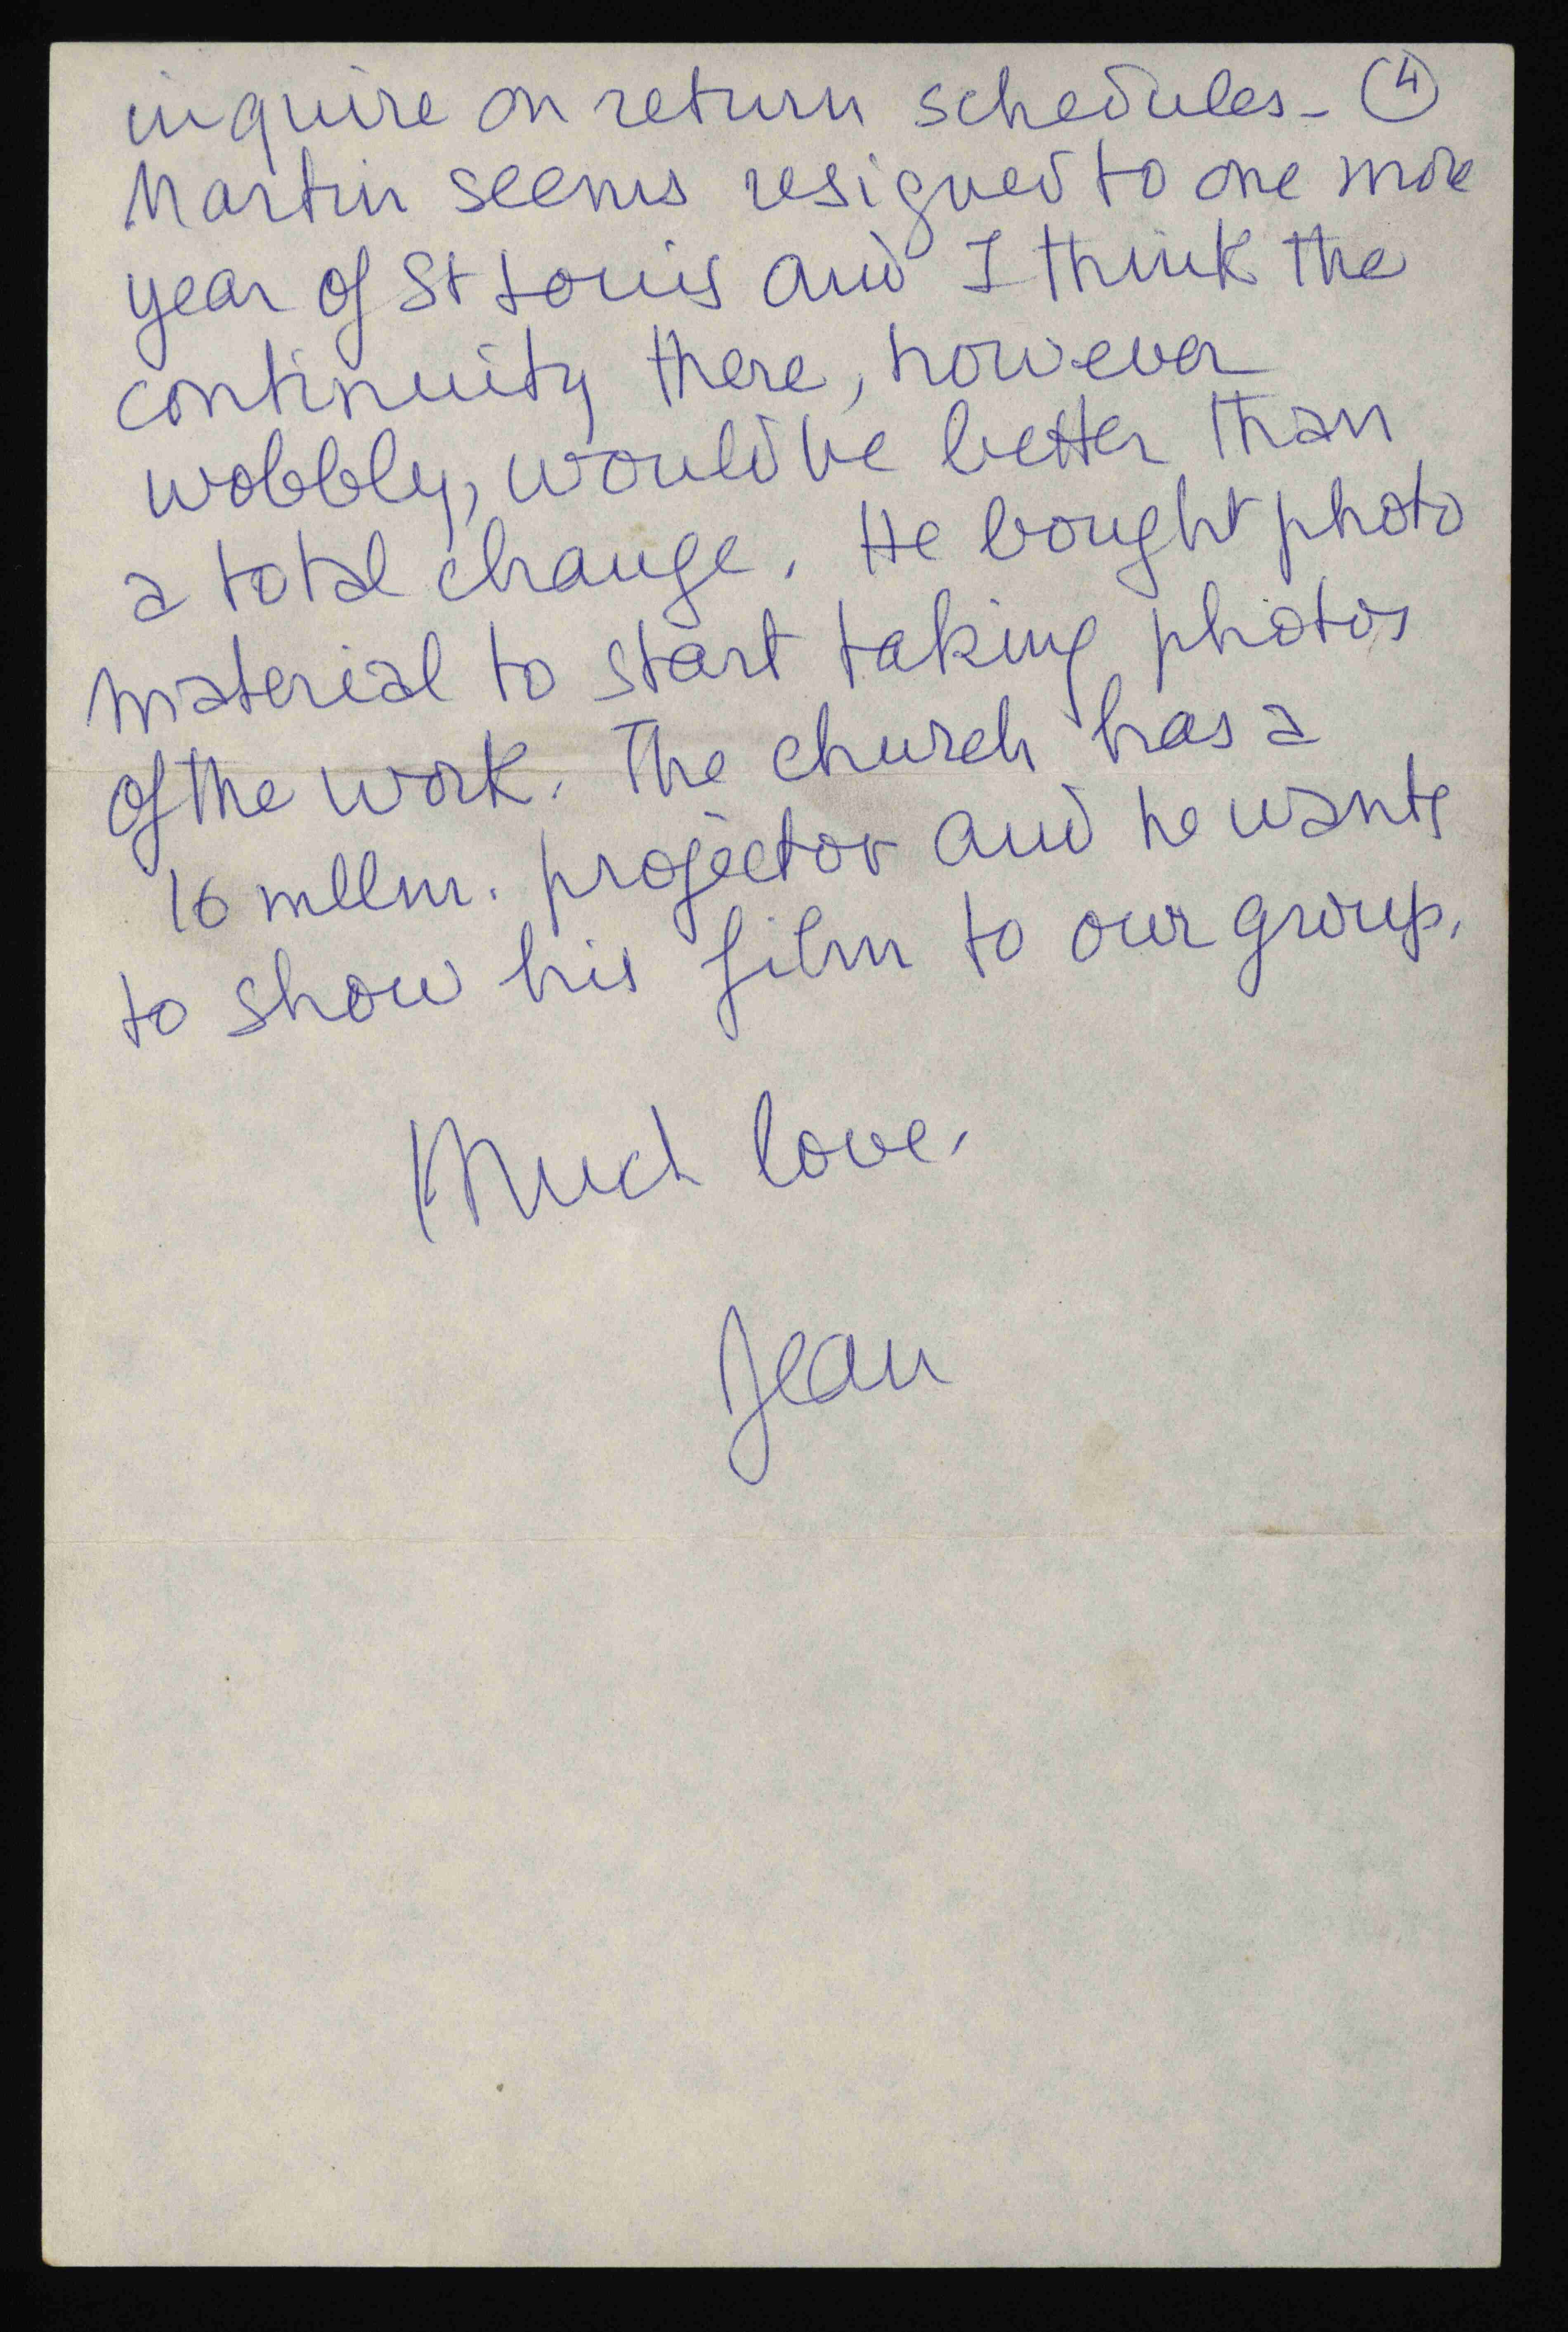 inquire on return schedules - 4
Martin seems resigned to one more
year of St Louis and I think the
continuity there, however
wobbly, would be better than
a total change. He bought photo
material to start taking photos
of the work. The church has a
16 mllm. projector and he wants
to show his film to our group.
Much love.
Jean